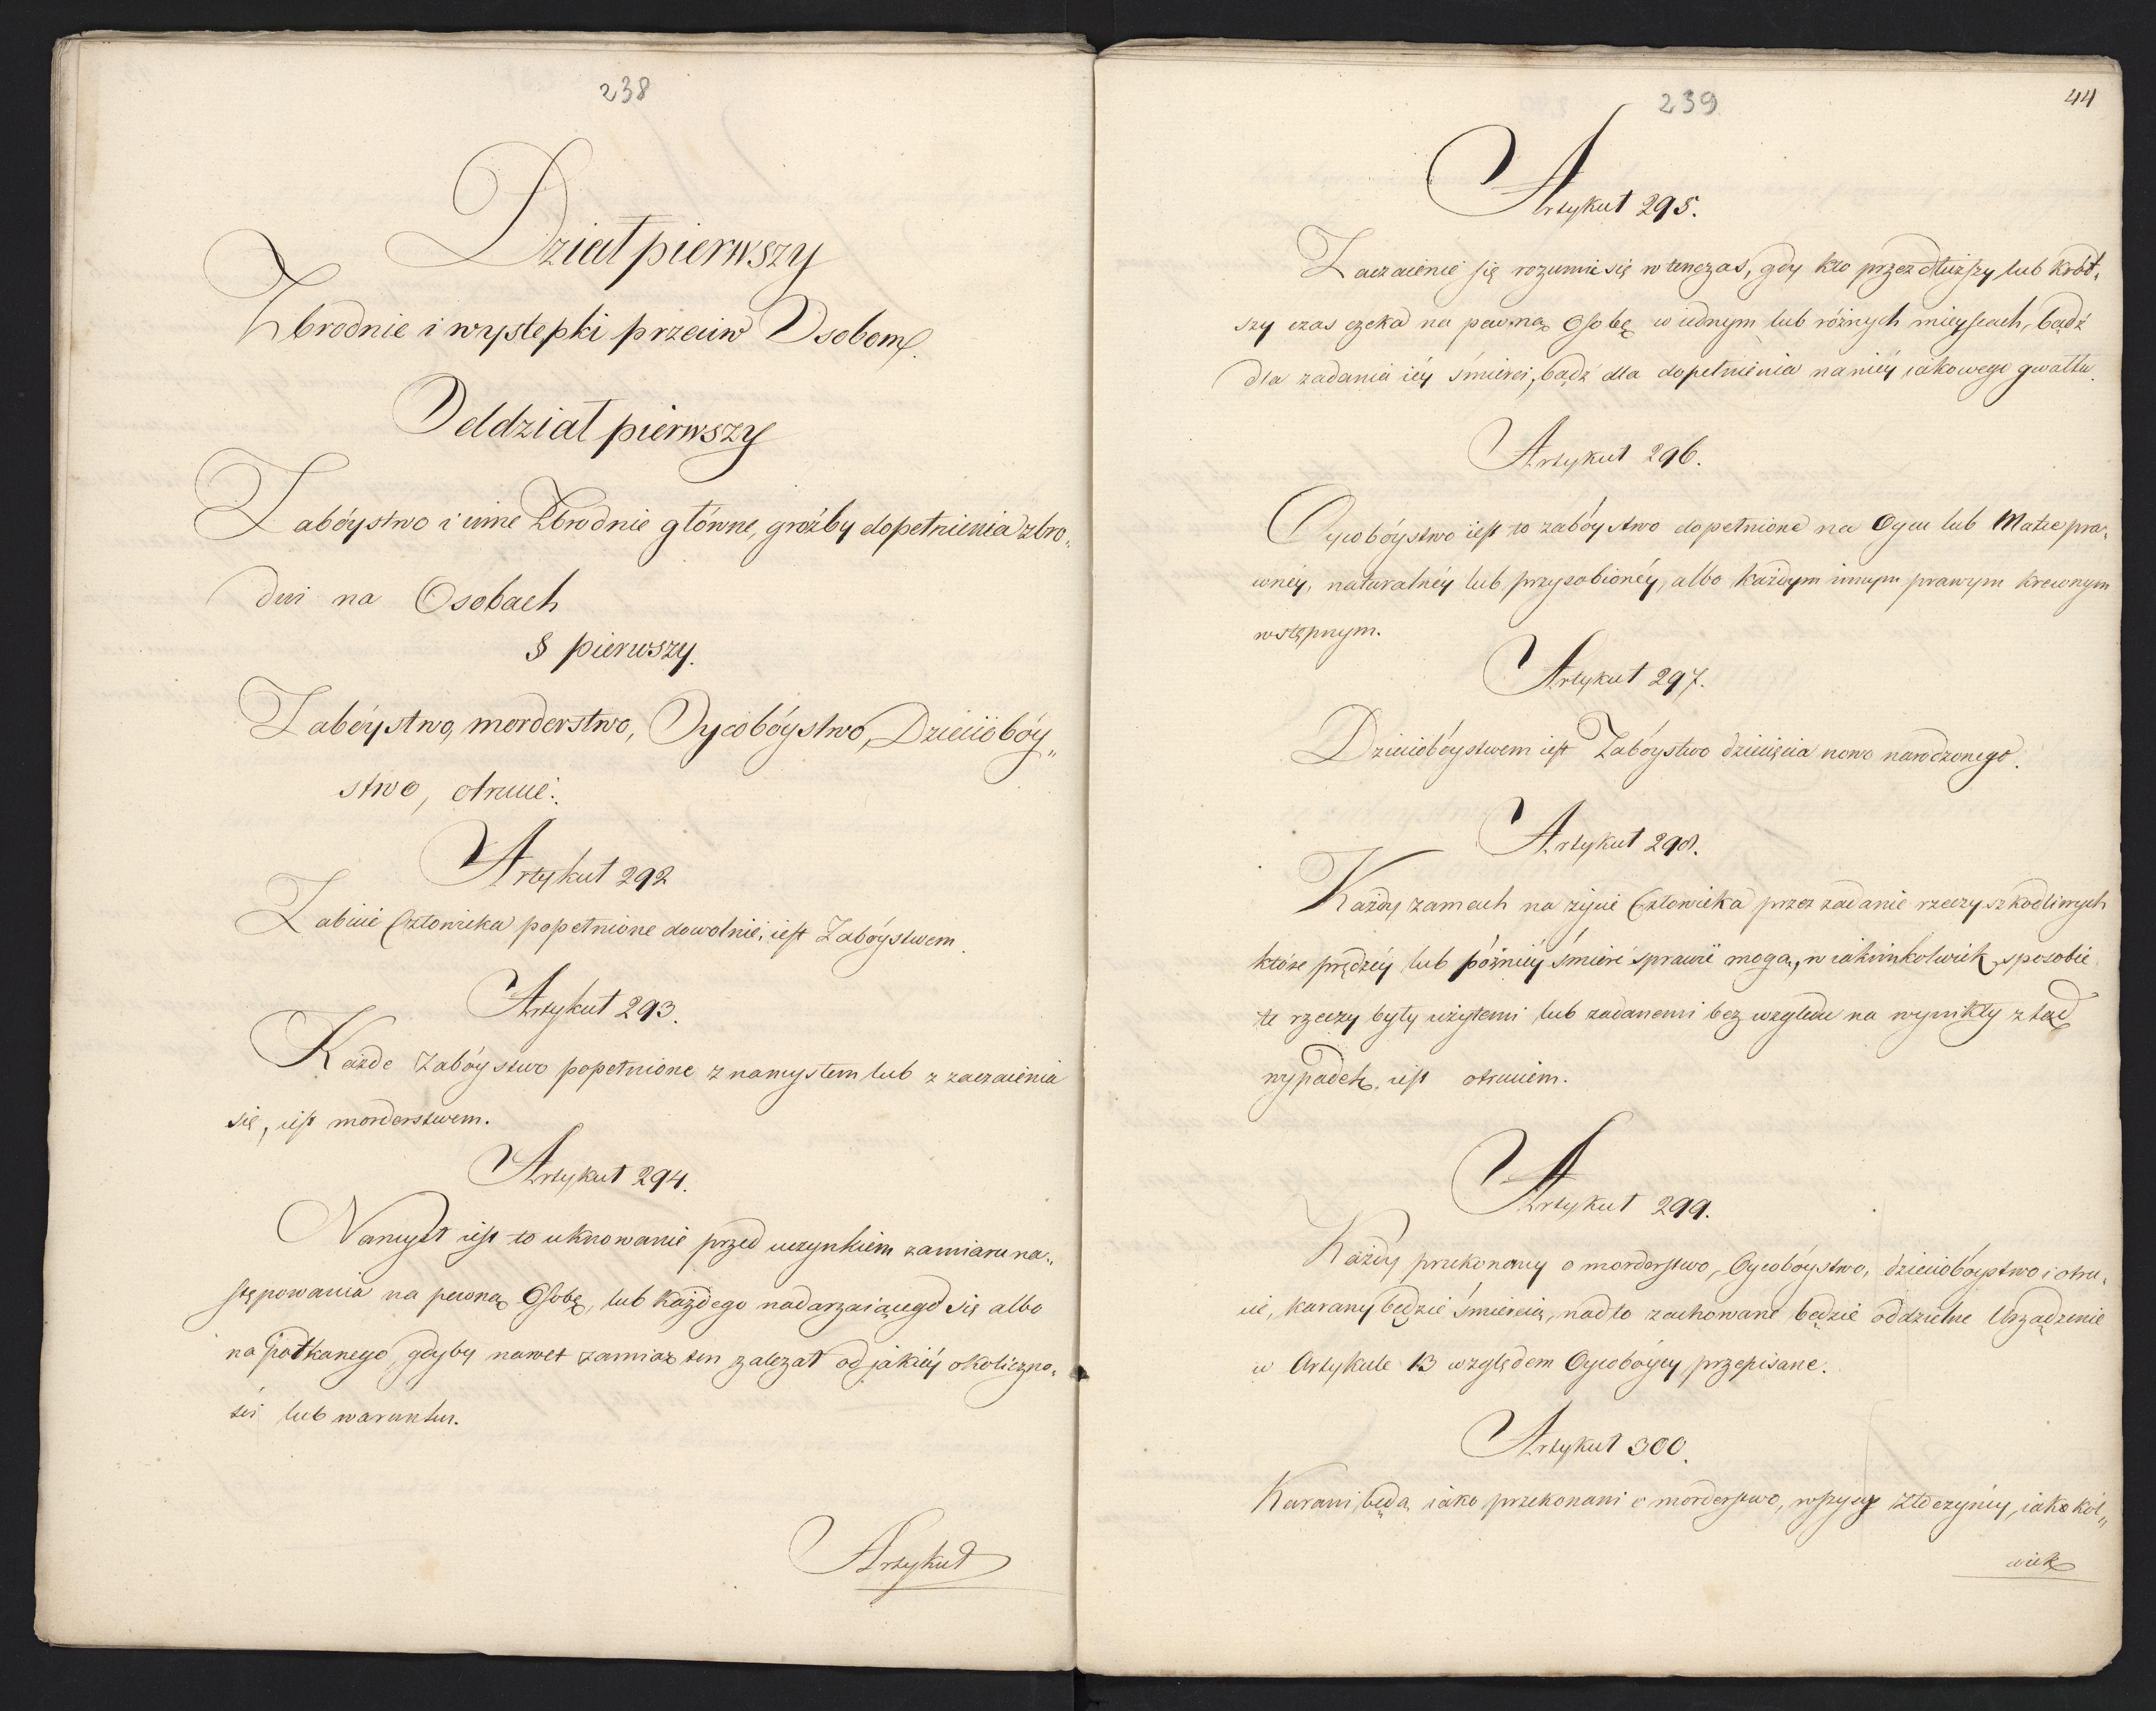 238
Dział pierwszy
Zbrodnie i występki przeciw Osobom.
Oddział pierwszy
Zabóystwo i inne Zbrodnie główne, groźby dopełnienia zbro„
dni na Osobach
§ pierwszy.
Zabóystwo, morderstwo, Oycobóystwo, Dzieciobóy„
stwo, otrucie.
Artykuł 292
Zabicie Człowieka popełnione dowolnie, iest Zabóystwem.
Artykuł 293.
Każde Zabóystwo popełnione z namysłem lub z zaczaienia
się, iest morderstwem.
Artykuł 294.
Namysł iest to uknowanie przed uczynkiem zamiaru na„
stępowania na pewną Osobę, lub każdego nadarzaiącego się albo
napotkanego, gdyby nawet zamiar ten zależał od jakiéy okoliczno„
ści lub warunku.
Artykuł
239
44
Artykuł 295.
Zaczaienie się rozumie się wtenczas, gdy kto przez dłuższy lub krót„
szy czas czeka na pewną Osobę w iednym lub różnych mieyscach, bądź
dla zadania iéy śmierci, bądź dla dopełnienia na niéy iakowego gwałtu.
Artykuł 296.
Oycobóystwo iest to zabóystwo dopełnione na Oycu lub Matce pra„
wnéy, naturalnéy lub przysobionéy, albo każdym innym prawym krewnym
wstępnym.
Artykuł 297.
Dzieciobóystwem iest Zabóystwo dziecięcia nowo narodzonego.
Artykuł 298.
Każdy zamach na życie Człowieka przez zadanie rzeczy szkodliwych
które prędzéy lub późniéy śmierć sprawić mogą, w iakimkolwiek sposobie
te rzeczy były użytemi lub zadanemi bez względu na wynikły ztąd
wypadek, iest otruciem.
Artykuł 299.
Każdy przekonany o morderstwo, Oycobóystwo, dzieciobóystwo i otru„
cie, karany będzie śmiercią, nadto zachowane będzie oddzielne Urządzenie
w Artykule 13 względem Oycobóycy przepisane.
Artykuł 300.
Karani będą iako przekonani o morderstwo, wszyscy Złoczyńcy, iakokol„
wiek